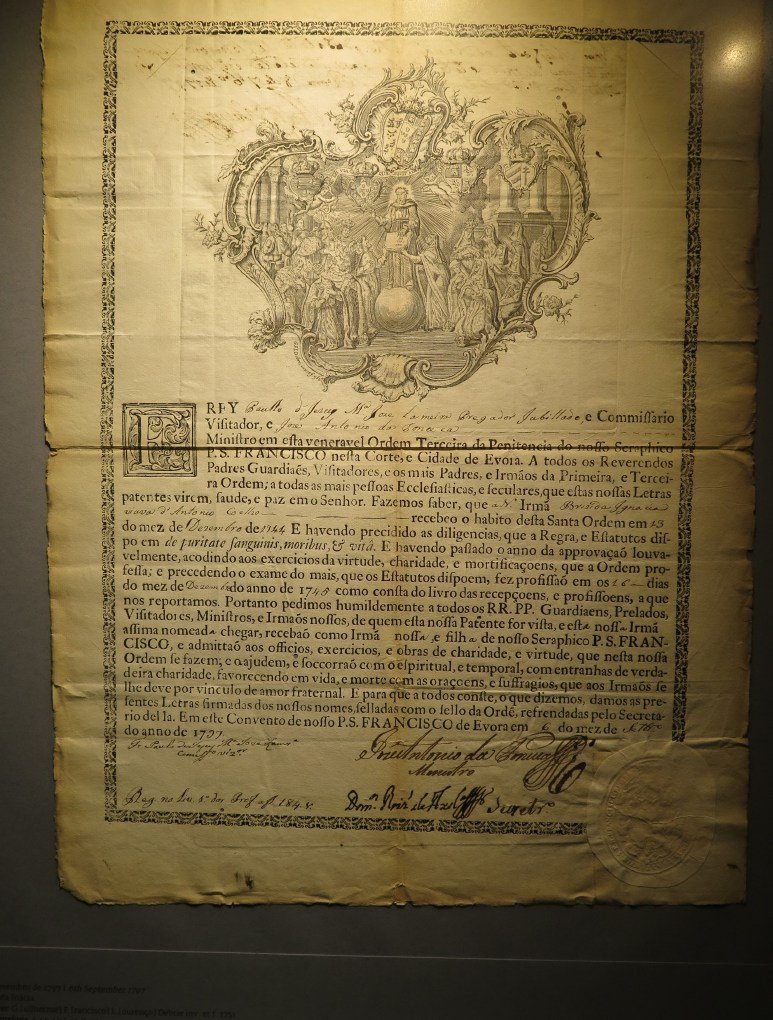 FREY Paullo d' Jesus Mª Pregador Jubillado, e Commissario
Visitador, e Joze Antonio da Fonceca
Ministro em esta veneravel Ordem Terceira da Penitencia do nosso Seraphico
P.S. FRANCISCO nesta Corte, e Cidade de Evora. A todos os Reverendos
Padres Guardiães, Visitadores, e os mais Padres, e Irmãos da Primeira, e Tercei-
ra Ordem; a todas as mais pessoas Ecclesiasticas, e seculares, que estas nossas Letras
patentes virem, saude, e paz em o Senhor. Fazemos saber, que a N. Irmã Ignacia
d'Antonio Coelho recebeo o habito desta Santa Ordem em 13
do mez de Dezembro de 1744 E havendo precidido as diligencias, que a Regra, e Estatutos dis-
poem de puritate sanguinis, moribus, & vitâ. E havendo passado o anno da approvaçaõ louva-
velmente, acodindo aos exercicios da virtude, charidade, e mortificaçoens, que a Ordem pro-
fessa; e precedendo o exame do mais, que os Estatutos dispoem, fez profissaõ em os 16 dias
do mez de Dezembro do anno de 1745 como consta do livro das recepçoens, e profissoens, a que
nos reportamos. Portanto pedimos humildemente a todos os RR. PP. Guardiaens, Prelados,
Visitadores, Ministros, e Irmaõs nossos, de quem esta nossa Patente for vista, e esta nossa Irmã
assima nomeada chegar, recebaõ como Irmã nossa e filha de nosso Seraphico P.S. FRAN-
CISCO, e admittaõ aos officios, exercicios, e obras de charidade, e virtude, que nesta nossa
Ordem se fazem; e o ajudem, e soccorraõ com o espiritual, e temporal, com entranhas de verda-
deira charidade, favorecendo em vida, e morte com as oraçoens, e suffragios, que aos Irmaõs se
lhe deve por vinculo de amor fraternal. E para que a todos conste, o que dizemos, damos as pre-
sentes Letras firmadas dos nossos nomes, selladas com o sello da Ordẽ, refrendadas pelo Secreta-
rio del la. Em este Convento de nosso P.S. FRANCISCO de Evora em 6 do mez de
do anno de 1797
Fr Paulo de Jesus Mª
Joze Antonio da Fonceca
Menistro
Reg. no Liv. 5º dos Prof. af. 184 v.
Secretrº
1797 | 6th September 1797